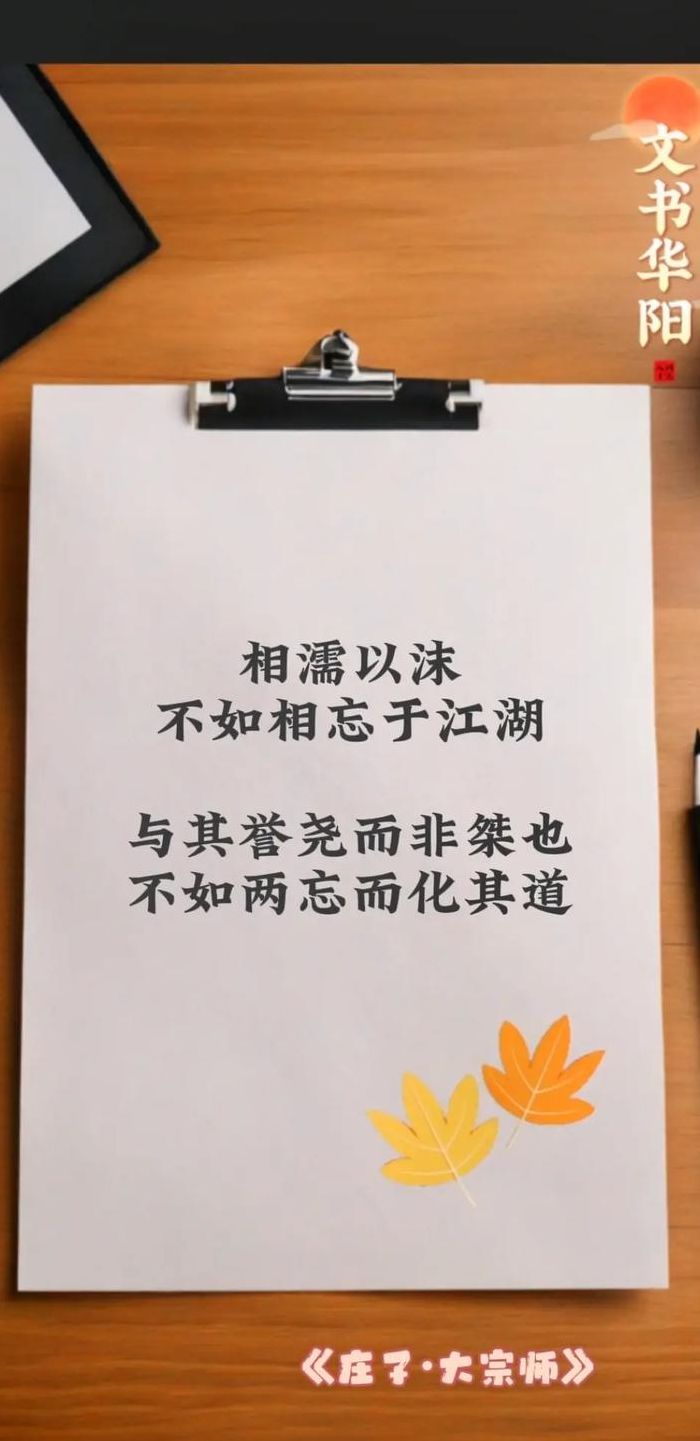 文书华阳
相濡以沫
不如相忘于江湖
与其誉尧而非桀也
不如两忘而化其道
《庄子·大宗师》